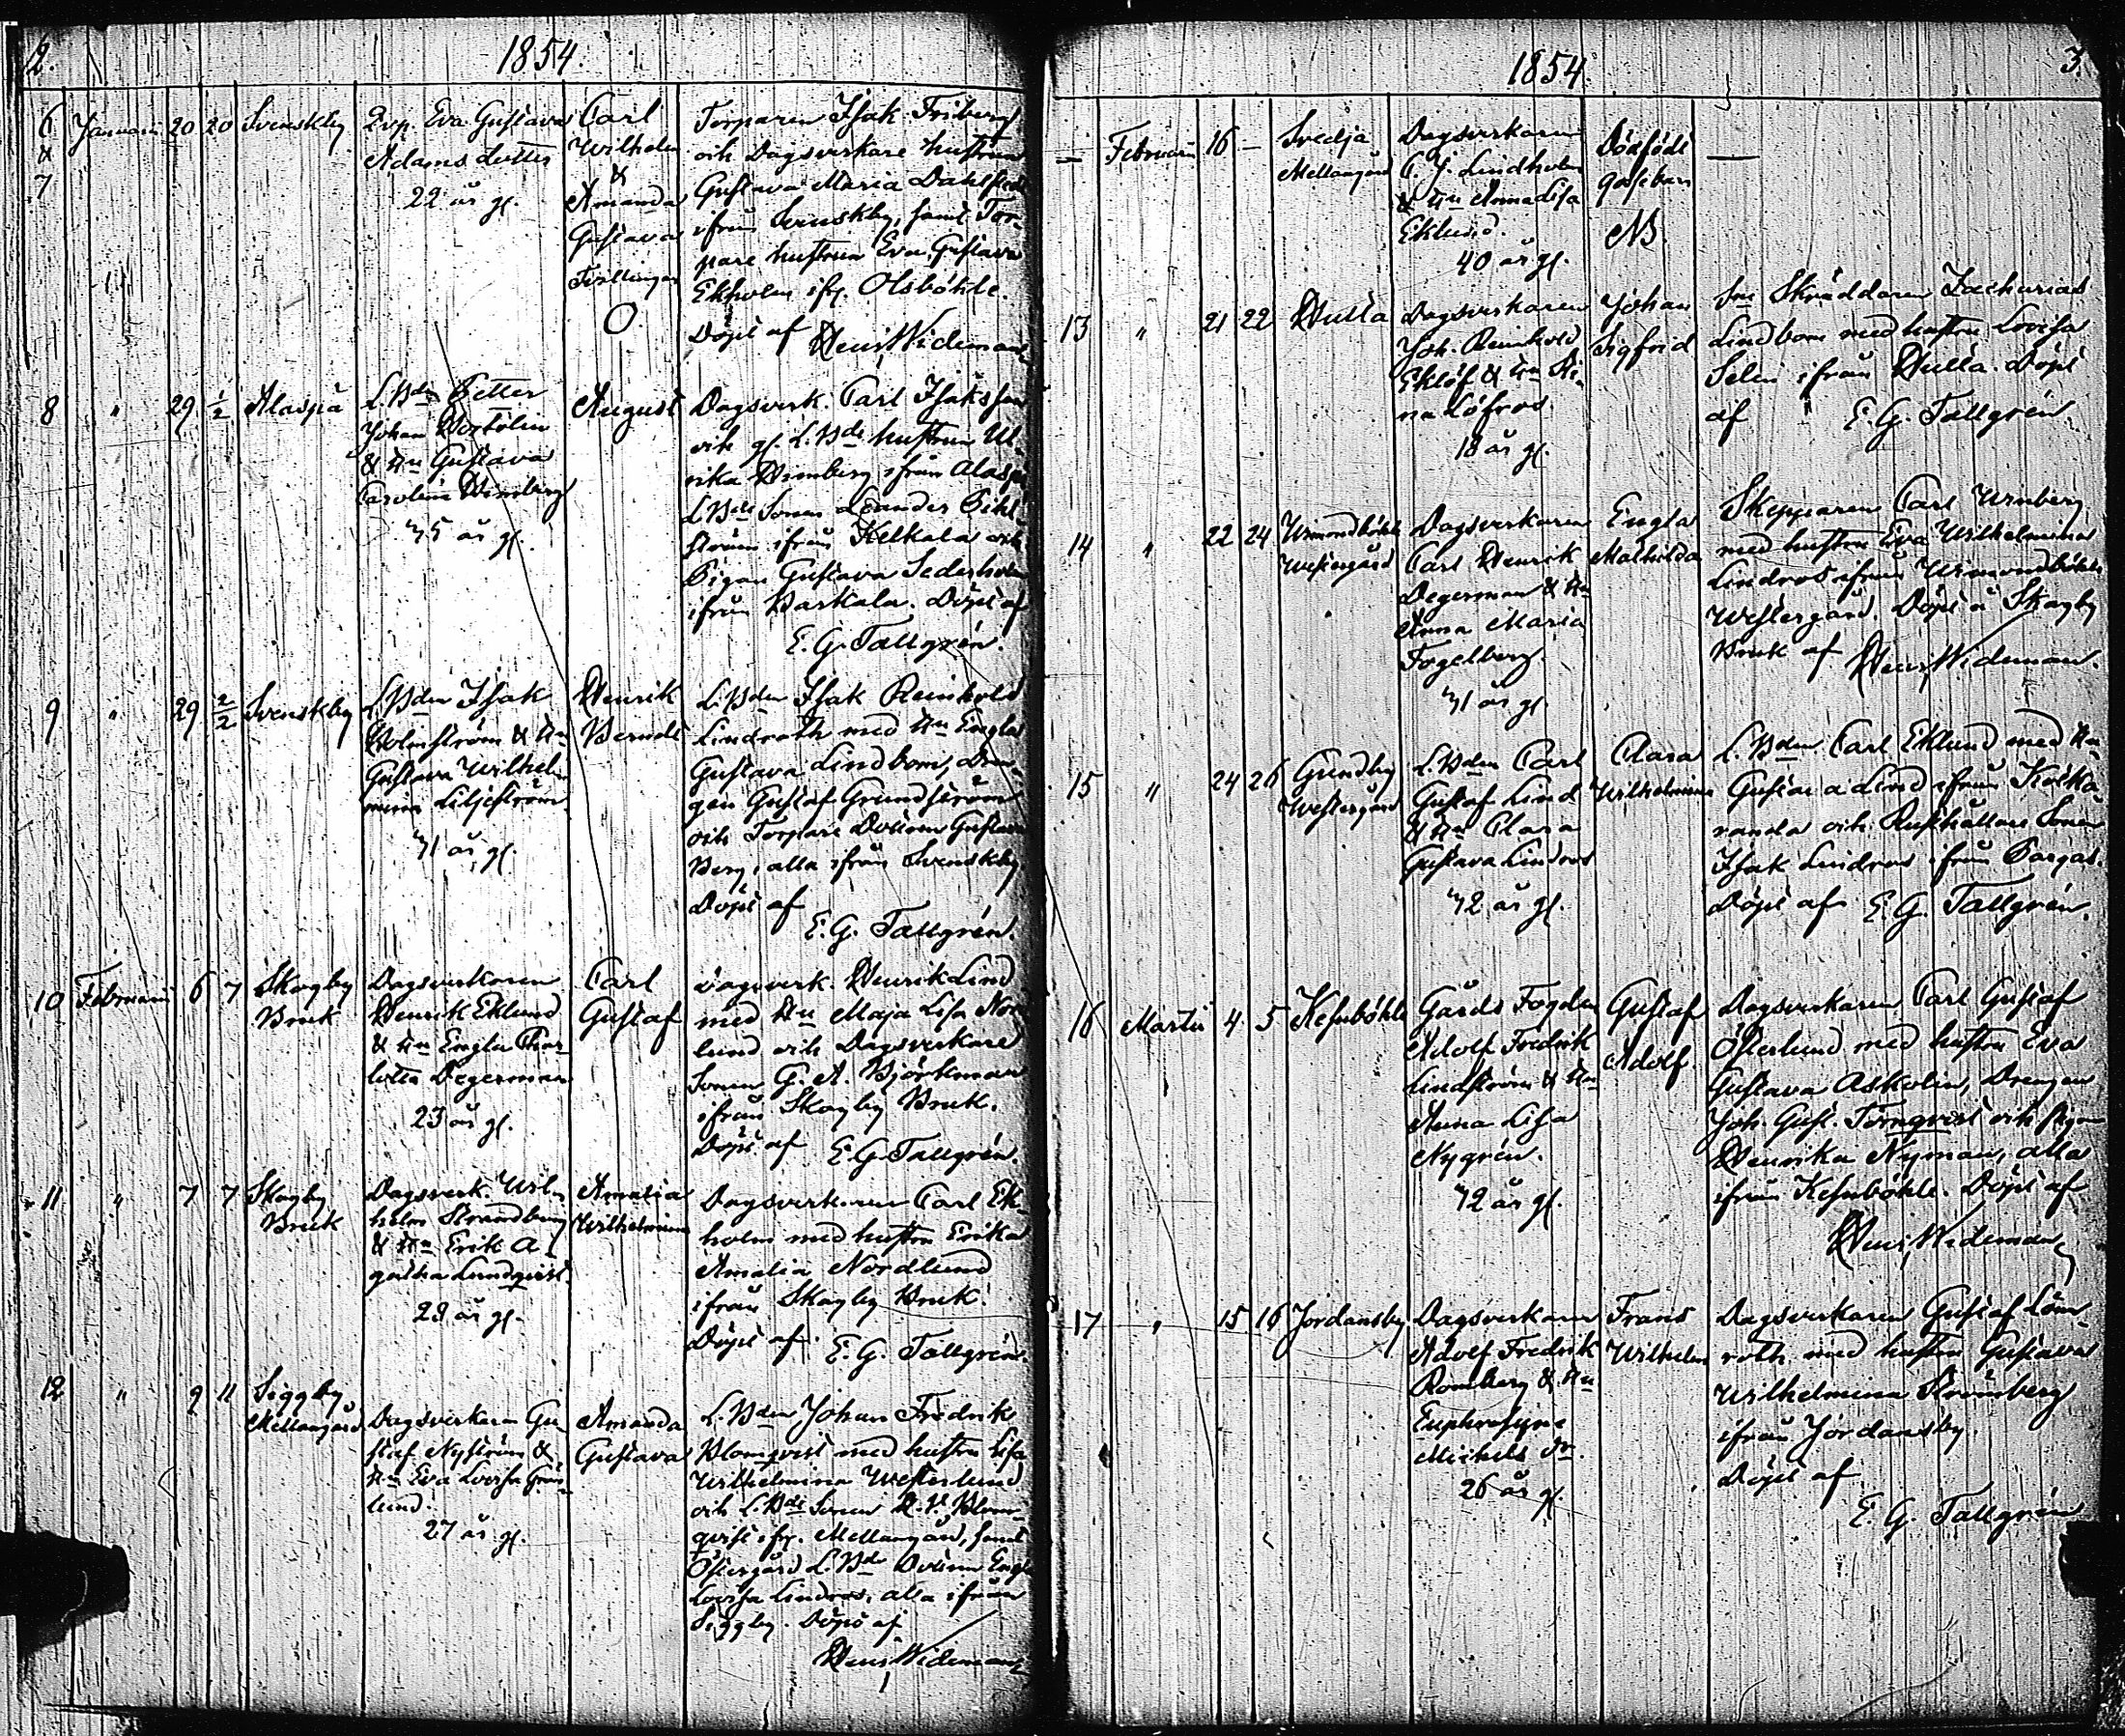 2.
1854.
6 & 7 Januarii 20 20 Svenskby
Qvp. Eva Gustava
Adams dotter
22 år gl.
Carl
Wilhelm
&
Amanda
Gustava
Tvillingar
O
Torparen Isak Friberg
och Dagsverkare hustrun
Gustava Maria Dahlstedt
ifrån Svenskby, samt Tor-
pare hustrun Eva Gustava
Ekholm ifr. Olsböhle.
Döpt af Henr. Wideman
8 " 29 1/2 Alaspä
L.Bdn Petter
Johan
& Hu Gustava
Carolina Wimberg
45 år gl.
August
Dagsverk. Carl Isaksson
och gl. L.Bds hustrun Ul-
rika Wimberg ifrån Alaspä
L.Bds Sonen Leander Sihl-
ström ifrån Kelkala och
Pigan Gustava Sederholm
ifrån Barkala. Döpt af
E. G. Tallgrén.
9 " 29 2/2 Svenskby
L.Bdn Isak
Holmström & Hu
Gustava Wilhel-
mina Liljeström
41 år gl.
Henrik
Berndt
L.Bdn Isak Reinhold
Lindroth med Hu Engla
Gustava Lindbom, Dren-
gen Gustaf Grundström
och Torpare Dottren Gustava
Berg, alla ifrån Svenskby
Döpt af
E. G. Tallgrén.
10 Februarii 6 7 Skogby Bruk
Dagsverkaren
Henrik Eklund
& Hu Engla Char-
lotta Degerman
23 år gl.
Carl
Gustaf
Dagsverk. Henrik Lind
med Hu Maja Lisa Nor-
lund och Dagsverkare
Sonen G. A. Björkman
ifrån Skogby Bruk.
Döpt af E. G. Tallgrén.
11 " 7 7 Skogby Bruk
Dagsverk. Wil-
helm Strandberg
& Hu Erik A-
gatha Lundqvist.
28 år gl.
Amalia
Wilhelmina
Dagsverkaren Carl Ek-
holm med hustru Erika
Amalia Nordlund
ifrån Skogby Bruk.
Döpt af E. G. Tallgrén.
12 " 9 11 Siggby Mellangård
Dagsverkaren Gu-
staf Nyström &
Hu Eva Lovisa Grön-
lund.
27 år gl.
Amanda
Gustava
L.Bdn Johan Fredrik
Blomqvist med hustru Lisa
Wilhelmina Westerlund
och L.Bds Sonen Blom-
qvist ifr. Mellangård, samt
Östergård L.Bds Dottren Engla
Lovisa Lindros, alla ifrån
Siggby. Döpt af
Henr. Wideman
1854.
3.
— Februarii 16 — Svedja Mellangård
Dagsverkaren
C. J. Lindholm
& Hu Anna Lisa
Eklund.
40 år gl.
Dödfödt
gossebarn
NB
—
13 " 21 22 Hulta
Dagsverkaren
Joh. Reinhold
Eklöf & Hu Sti-
na Löfros
18 år gl.
Johan
Sigfrid
Sn Skräddaren Zacharias
Lindbom med hustru Lovisa
Selin ifrån Hulta. Döpt
af E. G. Tallgrén
14 " 22 24 Wimondböhle Westergård
Dagsverkaren
Carl Henrik
Degerman & Hu
Anna Maria
Fogelberg.
41 år gl.
Engla
Mathilda
Skepparen Carl Winberg
med hustru Eva Wilhelmina
Lindros ifrån Wimondböhle
Westergård. Döpt å Skogby
Bruk af Henr. Wideman.
15 " 24 26 Grundby Westergård
L.Bdn Carl
Gustaf Lind
& Hu Clara
Gustava Lindros
42 år gl.
Clara
Wilhelmina
L.Bdn Carl Eklund med Hu
Gustava Lind ifrån Koska-
randa och Rusthållare Sonen
Isak Lindros ifrån Pargas.
Döpt af E. G. Tallgrén.
16 Martii 4 5 Kesuböhle
Gårds Fogden
Adolf Fredrik
Lindström & Hu
Anna Lisa
Nygrén.
42 år gl.
Gustaf
Adolf
Dagsverkaren Carl Gustaf
Österlund med hustru Eva
Gustava Askolin, Drengen
Joh. Gust. Törnqvist och Pigan
Henrika Nyman, alla
ifrån Kesuböhle. Döpt af
Henr. Wideman
17 " 15 16 Jordansby
Dagsverkaren
Adolf Fredrik
Romberg & Hu
Euphrosyne
Michels Dr.
26 år gl.
Frans
Wilhelm
Dagsverkaren Gustaf Lönn-
roth med hustru Gustava
Wilhelmina Strömberg
ifrån Jordansby.
Döpt af
E. G. Tallgrén